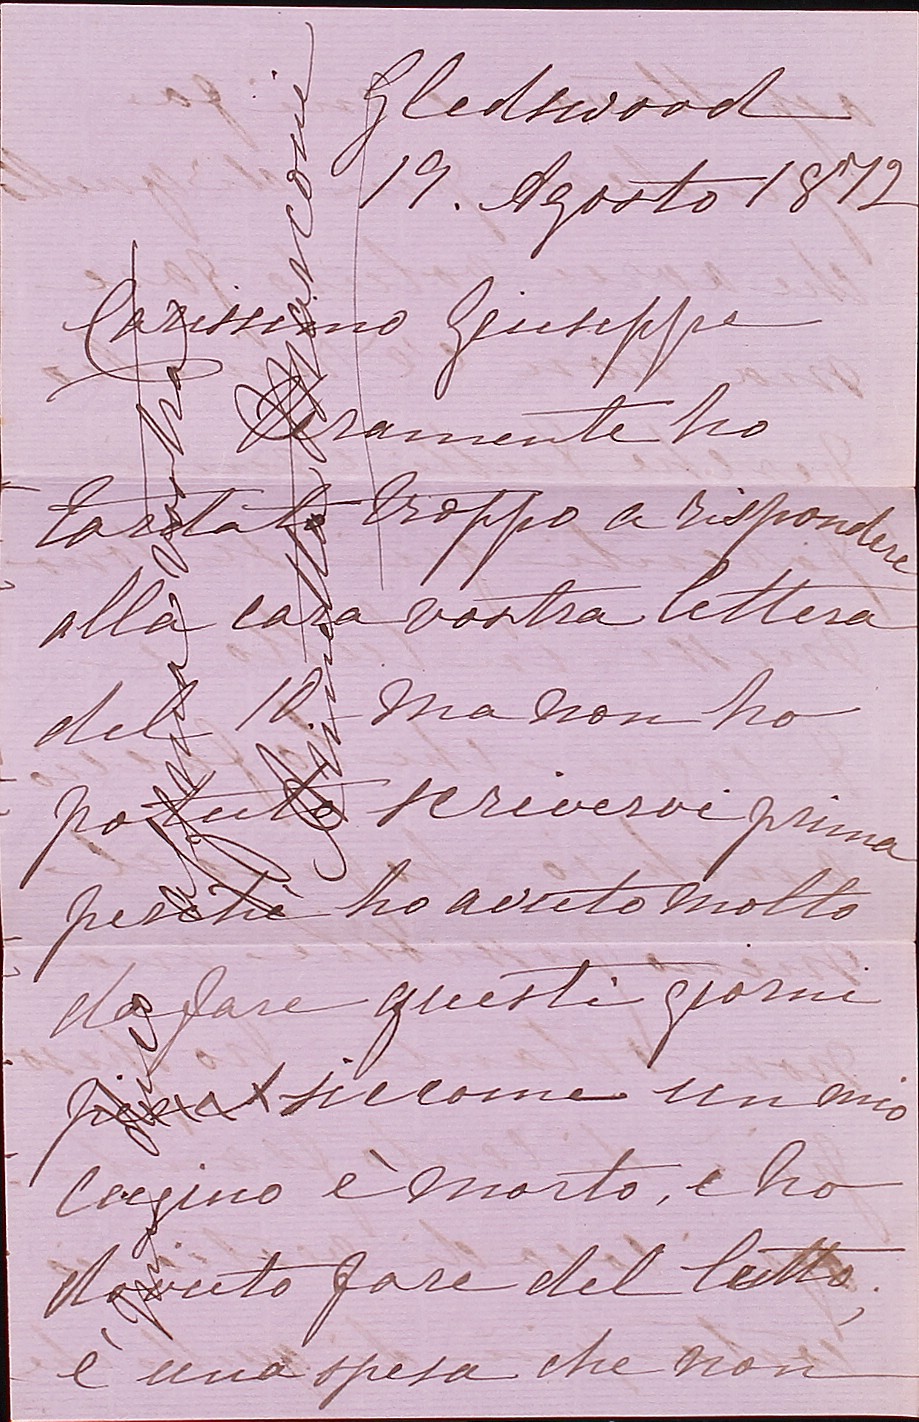 Gledswood
19. Agosto 1872
Carissimo Giuseppe
Veramente ho
tardato troppo a rispondere
alla cara vostra lettera
del 10 ma non ho
potuto scrivervi prima
perchè ho avuto molto
da fare questi giorni
siccome un mio
cugino è morto, e ho
dovuto fare del lutto,
è una spesa che non
vostra
Annetta Marconi